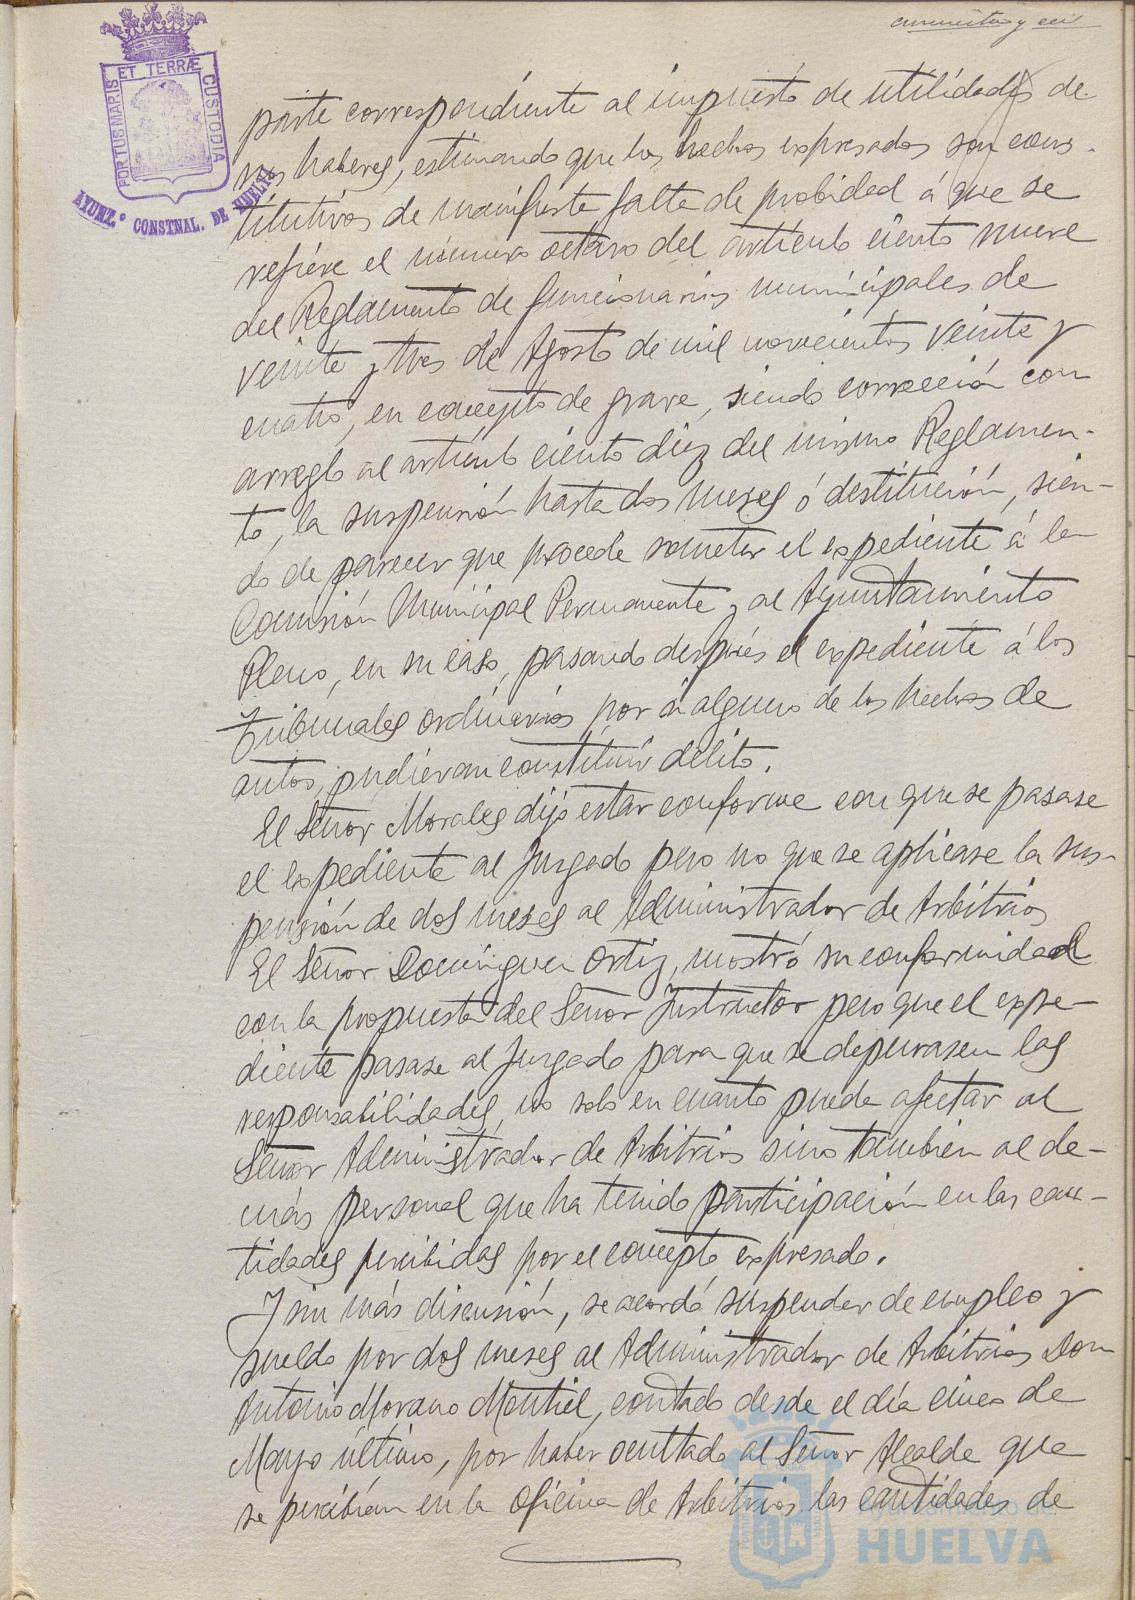 cuarenta y seis
PORTUS MARIS ET TERRÆ CUSTODIA
AYUNT.º CONSTNAL. DE HUELVA
parte correspondiente al impuesto de utilidades de
sus haberes, estimando que los hechos expresados son cons-
titutivos de manifiesta falta de probidad á que se
refiere el número octavo del artículo ciento nueve
del Reglamento de funcionarios municipales de
veinte y tres de Agosto de mil novecientos veinte y
cuatro, en concepto de grave, siendo corrección con
arreglo al artículo ciento diez del mismo Reglamen-
to, la suspensión hasta dos meses ó destitución, sien-
do de parecer que procede someter el expediente á la
Comisión Municipal Permanente y al Ayuntamiento
Pleno, en su caso, pasando después el expediente á los
Tribunales ordinarios por si alguno de los hechos de
autos, pudieran constituir delito.
El Señor Morales dijo estar conforme con que se pasase
el expediente al Juzgado pero no que se aplicase la sus-
pensión de dos meses al Administrador de Arbitrios
El Señor Domínguez Ortiz, mostró su conformidad
con la propuesta del Señor Instructor pero que el expe-
diente pasase al Juzgado para que se depurasen las
responsabilidades, no solo en cuanto pueda afectar al
Señor Administrador de Arbitrios sino también al de-
más personal que ha tenido participación en las can-
tidades percibidas por el concepto expresado.
Y sin más discusión, se acordó suspender de empleo y
sueldo por dos meses al Administrador de Arbitrios Don
Antonio Morano Montiel, contado desde el día cinco de
Mayo último, por haber ocultado al Señor Alcalde que
se percibían en la oficina de Arbitrios las cantidades de
Ayuntamiento de
HUELVA